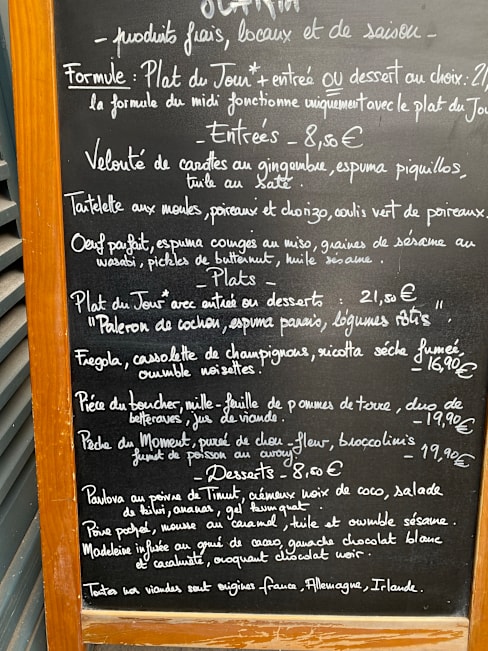 - produits frais, locaux et de saison -
Formule : Plat du Jour* + entrée OU dessert au choix : 21
la formule du midi fonctionne uniquement avec le plat du Jou
- Entrées - 8,50€
Velouté de carottes au gingembre, espuma piquillos,
tuile au saté.
Tartelette aux moules, poireaux et chorizo, coulis vert de poireaux.
Oeuf parfait, espuma courges au miso, graines de sésame au
wasabi, pickles de butternut, huile sésame.
- Plats -
Plat du Jour* avec entrée ou desserts : 21,50€
"Paleron de cochon, espuma panais, légumes rôtis".
Fregola, cassolette de champignons, ricotta séche fumée,
crumble noisettes. - 16,90€
Piéce du boucher, mille-feuille de pommes de terre, duo de
betteraves, jus de viande. - 19,90€
Pêche du Moment, pureé de chou-fleur, broccolinis
fumet de poisson au curry - 19,90€
- Desserts - 8,50€
Pavlova au poivre de Timut, crémeux noix de coco, salade
de kiwi, ananas, gel kumquat.
Poire pochée, mousse au caramel, tuile et crumble sésame.
Madeleine infusée au grué de cacao, ganache chocolat blanc
et cacahuète, croquant chocolat noir.
Toutes nos viandes sont origines france, Allemagne, Irlande.